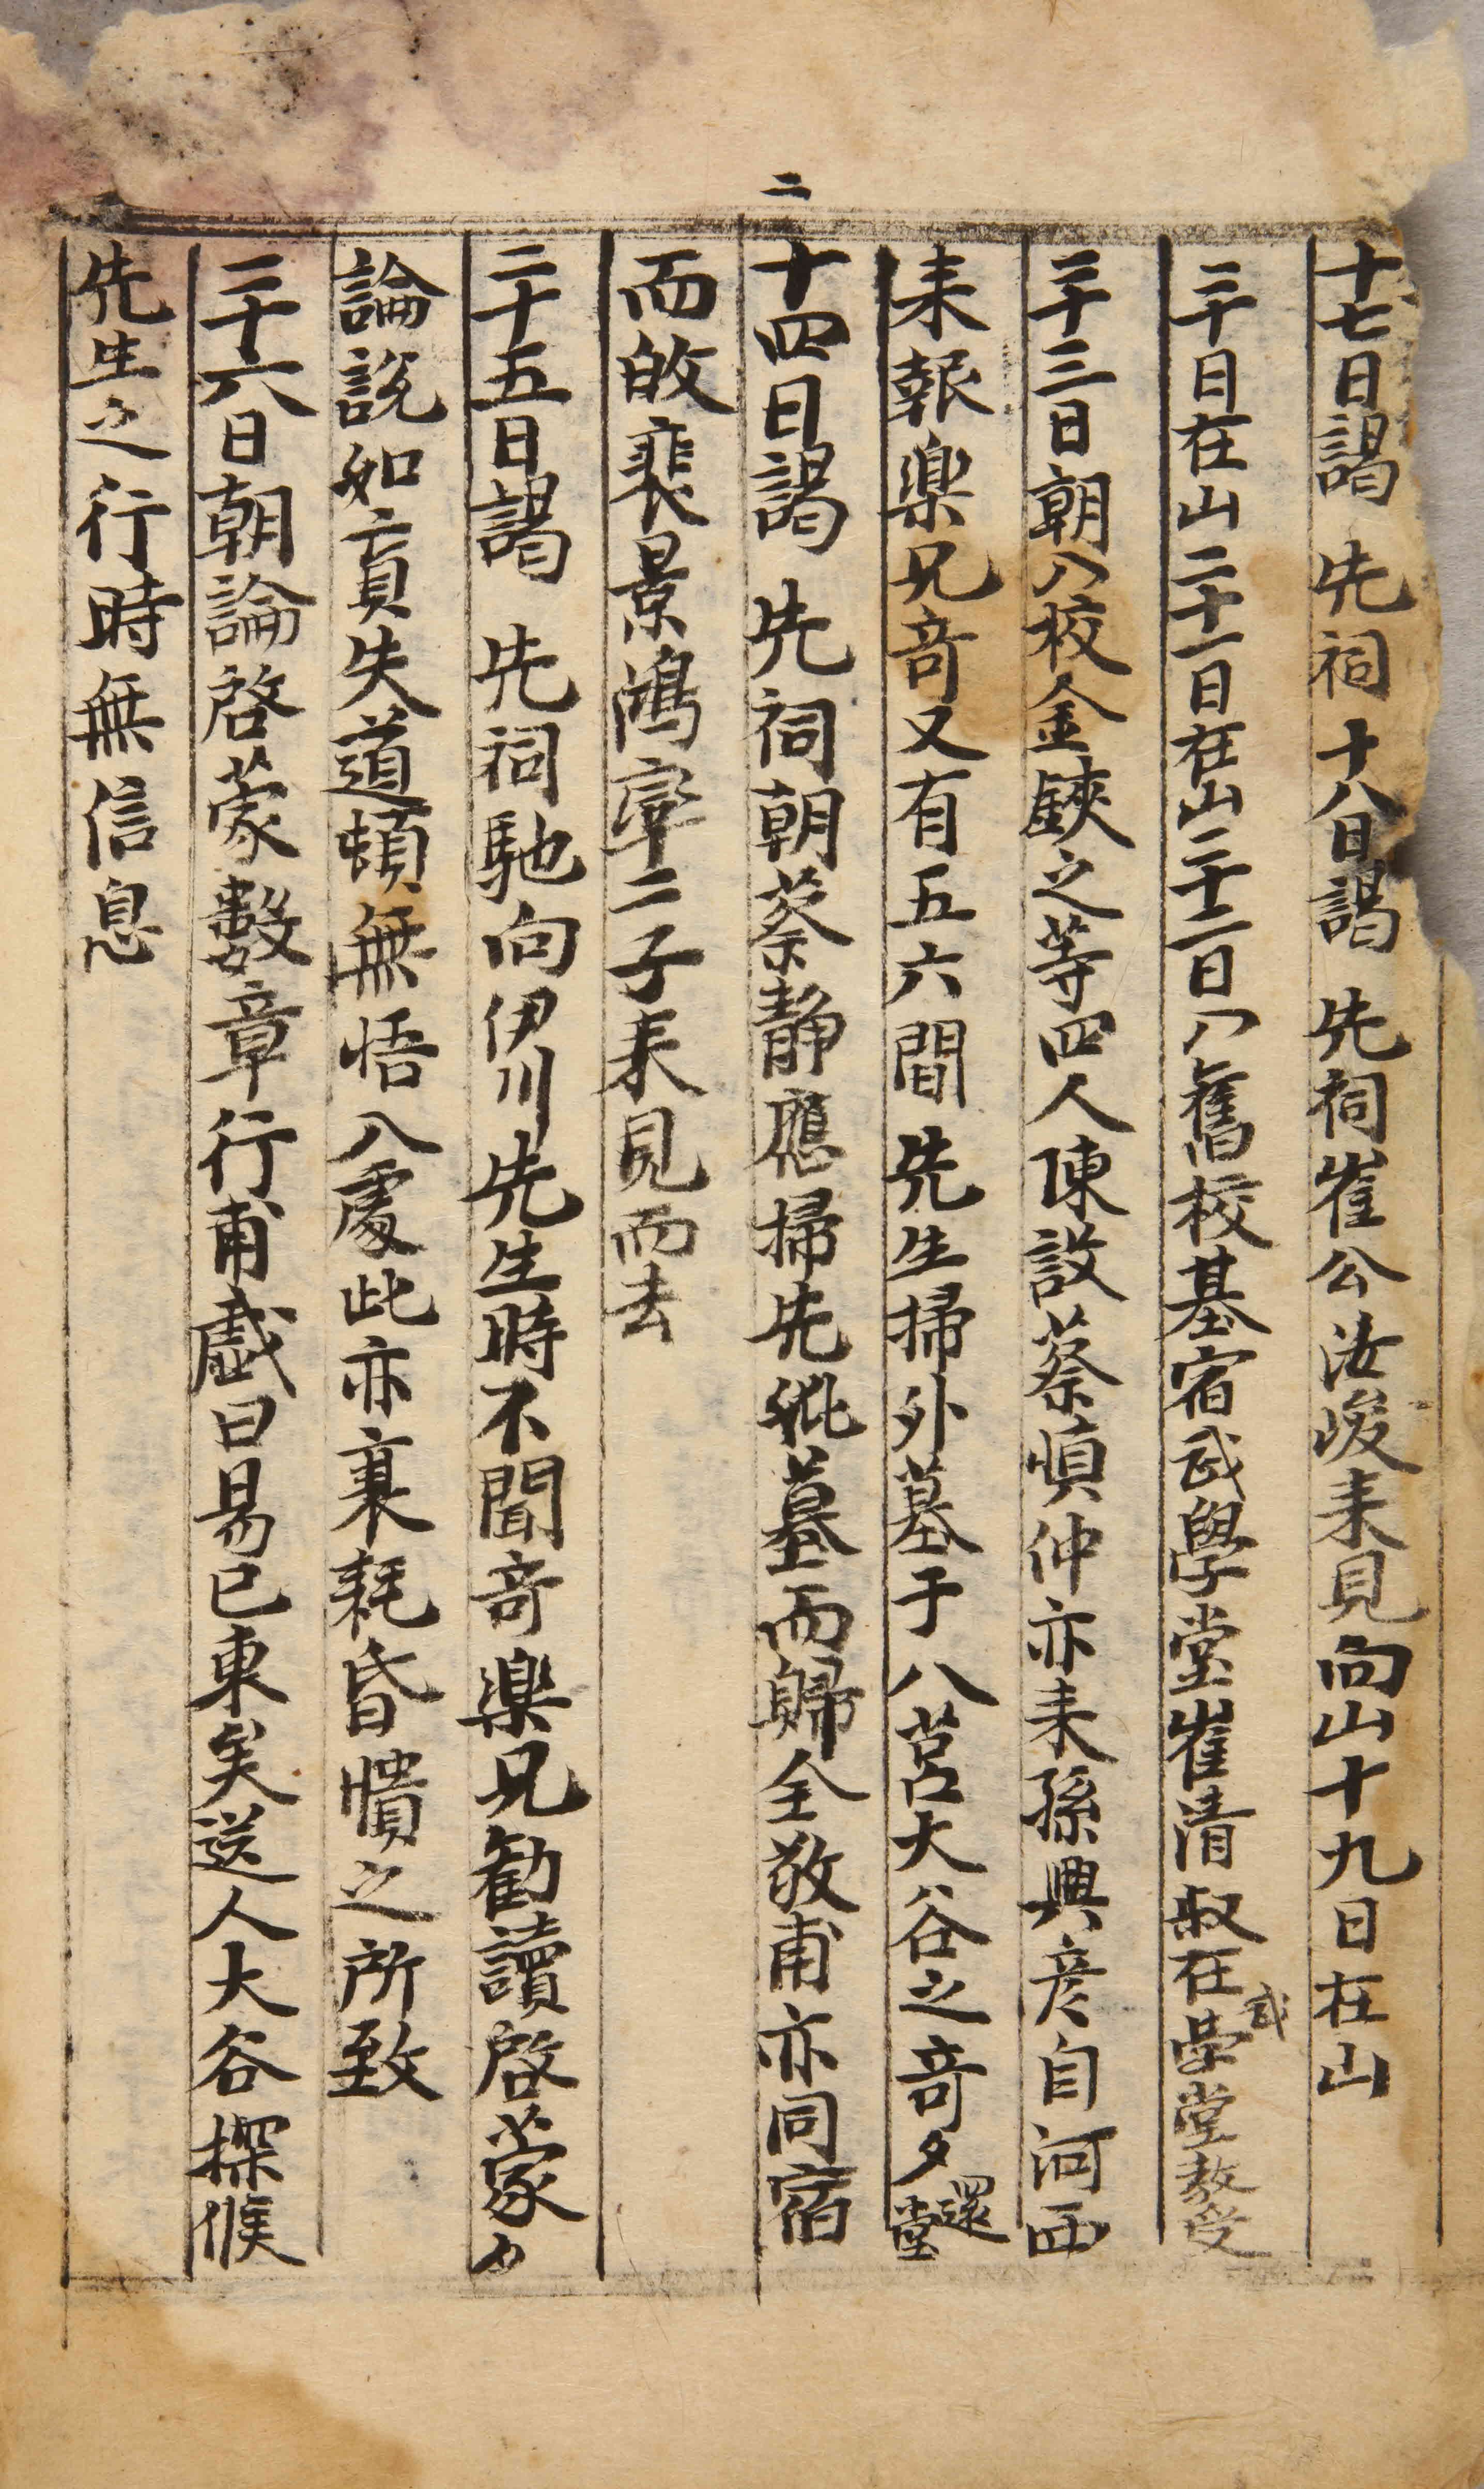 十七日謁　先祠十八日謁　先祠崔公汝峻来見向山十九日在山
二十日在山二十一日在山二十二日入舊校基宿武學堂崔清叔在武學堂教受
二十三日朝入校金鋏之等四人陳設蔡愼仲亦来孫興彦自河西
来報樂兄奇又有五六間先生掃外墓于八莒大谷之奇夕還堂
二
十四日謁　先祠朝蔡靜應掃先妣墓而歸全敬甫亦同宿
而攸裴景鴻寧二子来見而去
二十五日謁　先祠馳向伊川先生時不聞奇樂兄勸讀啓蒙夕
論説如盲失道頓無悟入處此亦衰耗昏憒之所致
二十六日朝論啓蒙數章行甫戲曰易已東矣送人大谷探候
先生之行時無信息